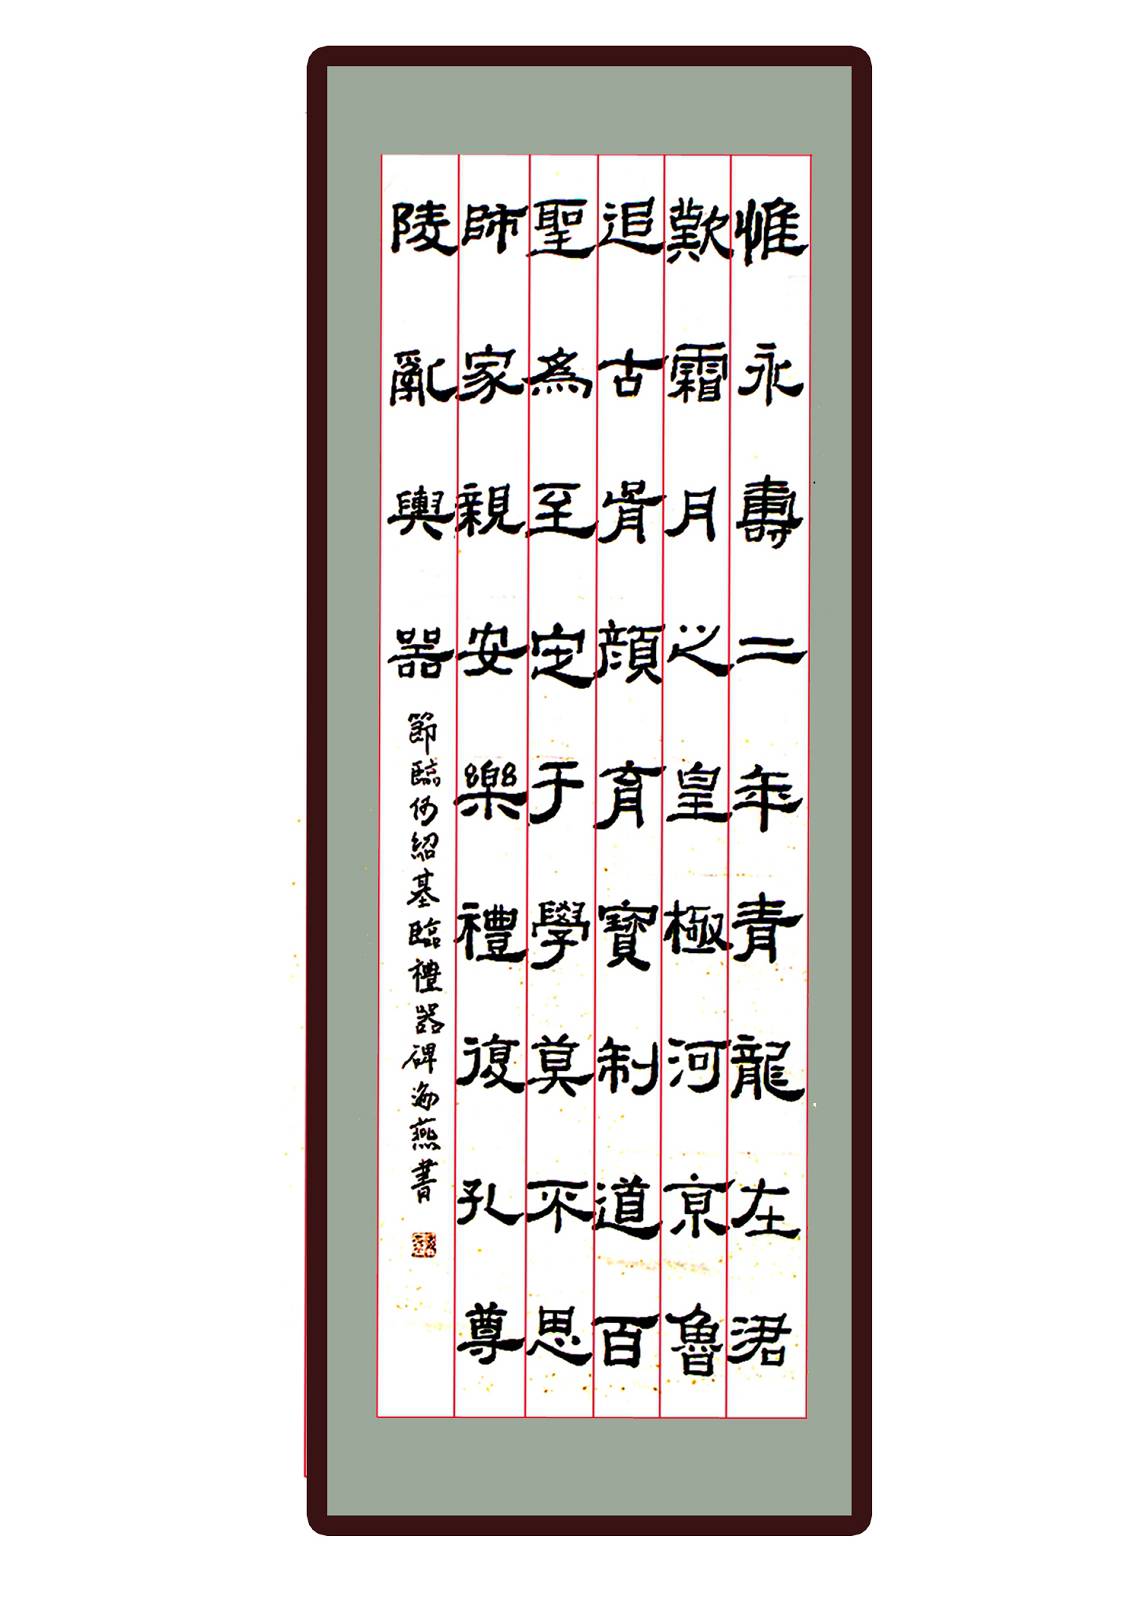 惟永壽二年青龍左涒
歎霜月之皇極河亰魯
追古育顏育寶制道百
聖為至定于學莫不思
師家親安樂禮復孔尊
陵亂輿器
節臨何紹基臨禮器碑海燕書